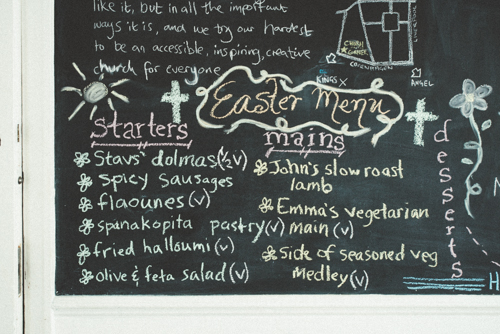 like it, but in all the important
ways it is, and we try our hardest
to be an accessible, inspiring, creative
church for everyone
COPENHAGEN
KINGS X
ANGEL
Easter Menu
Starters
Stavs' dolmas (½v)
Spicy Sausages
flaounes (v)
spanakopita pastry (v)
fried halloumi (v)
Olive & feta salad (v)
mains
John's slow roast
lamb
Emma's vegetarian
main (v)
Side of seasoned veg
Medley (v)
desserts
H